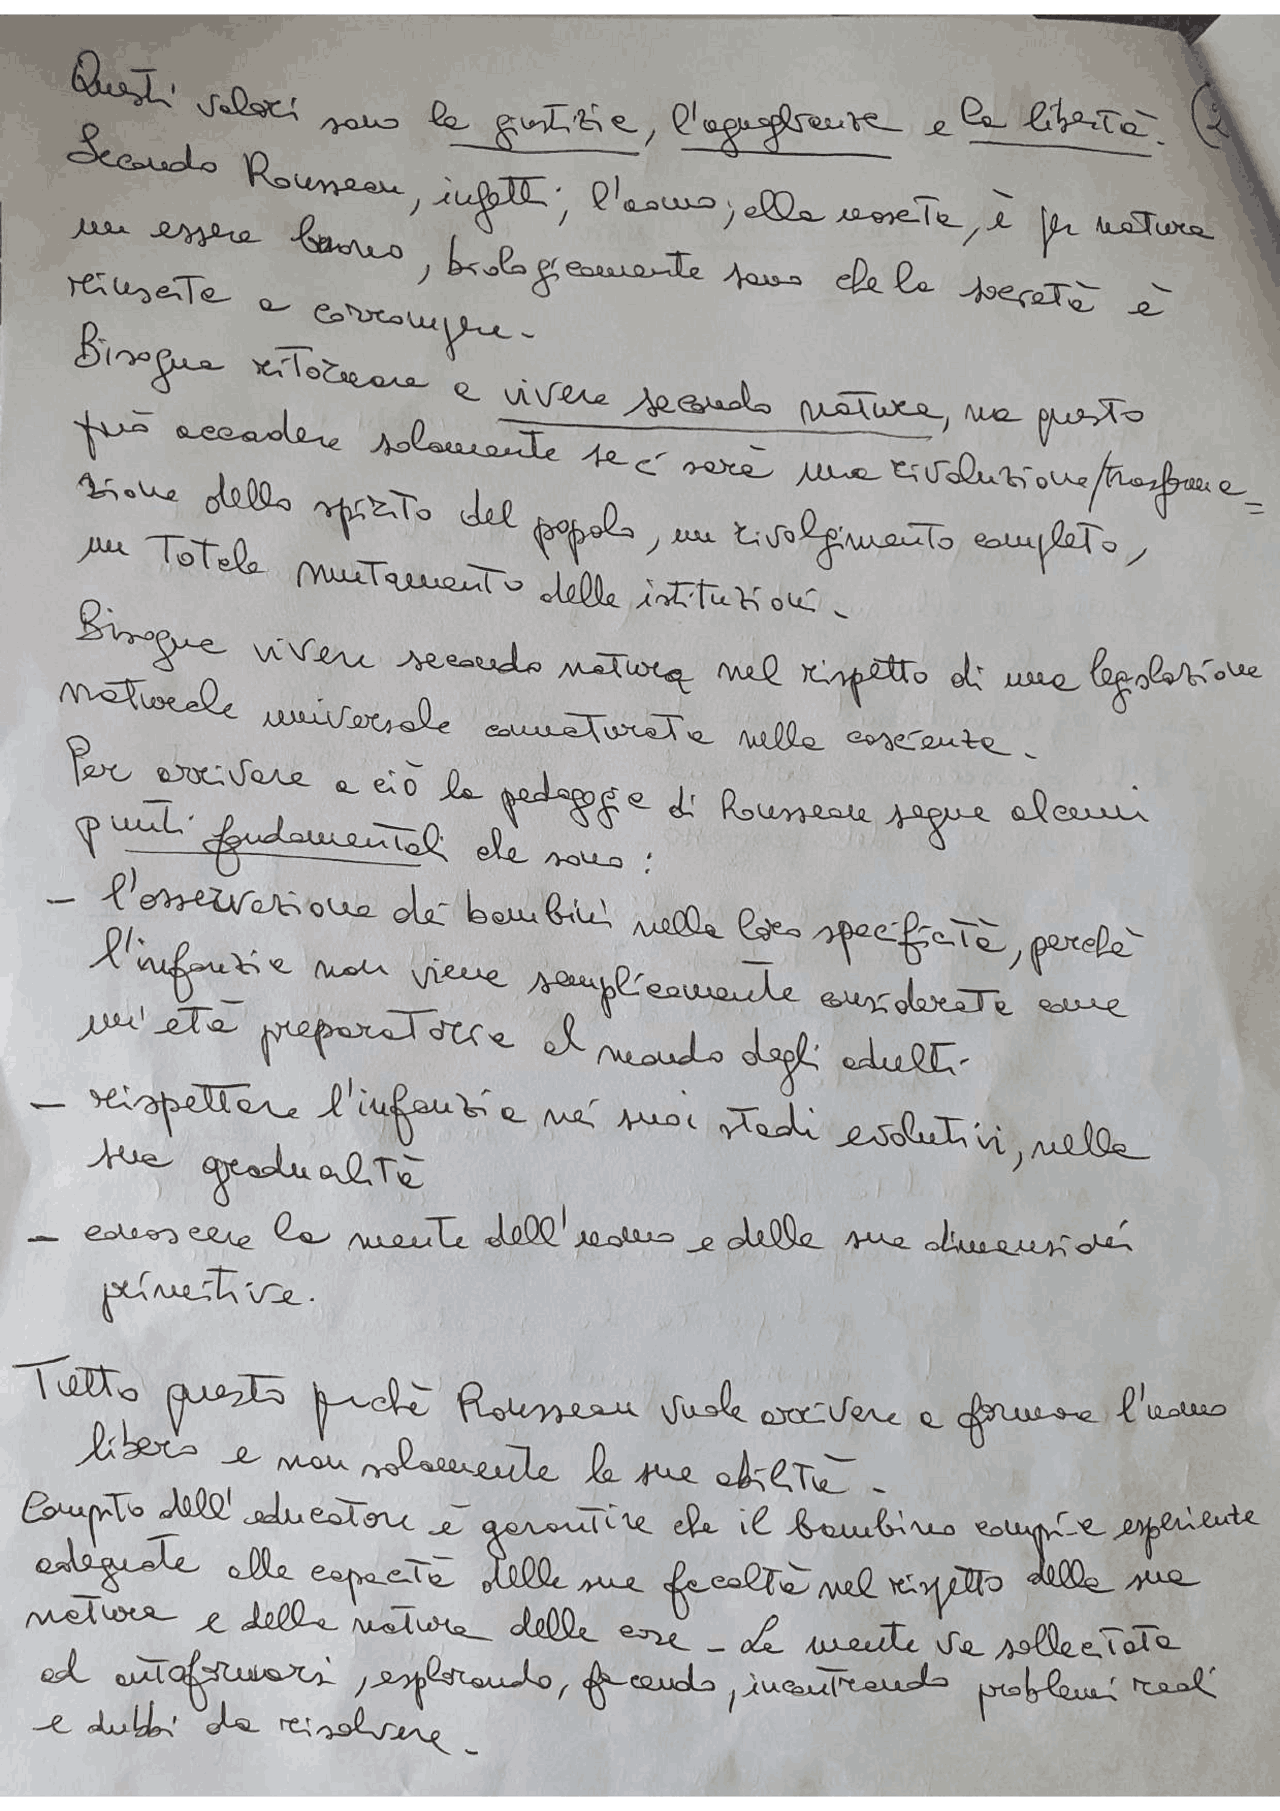 Questi valori sono la giustizia, l'eguaglianza e la libertà. (2
Secondo Rousseau, infatti, l'uomo, alla nascita, è per natura
un essere buono, biologicamente sano che la società è
riuscita a corrompere.
Bisogna ritornare a vivere secondo natura, ma questo
può accadere solamente se ci sarà una rivoluzione/trasforma=
zione dello spirito del popolo, un rivolgimento completo,
un totale mutamento delle istituzioni.
Bisogna vivere secondo natura nel rispetto di una legislazione
naturale universale connaturata nella coscienza.
Per arrivare a ciò la pedagogia di Rousseau segue alcuni
punti fondamentali che sono:
- l'osservazione dei bambini nella loro specificità, perchè
l'infanzia non viene semplicemente considerata come
un'età preparatoria al mondo degli adulti.
- rispettare l'infanzia nei suoi stadi evolutivi, nella
sua gradualità
- conoscere la mente dell'uomo e delle sue dimensioni
primitive.
Tutto questo perchè Rousseau vuole arrivare a formare l'uomo
libero e non solamente le sue abilità.
Compito dell'educatore è garantire che il bambino compia esperienze
adeguate alle capacità delle sue facoltà nel rispetto della sua
natura e della natura delle cose - La mente va sollecitata
ad autoformarsi, esplorando, facendo, incontrando problemi reali
e dubbi da risolvere.